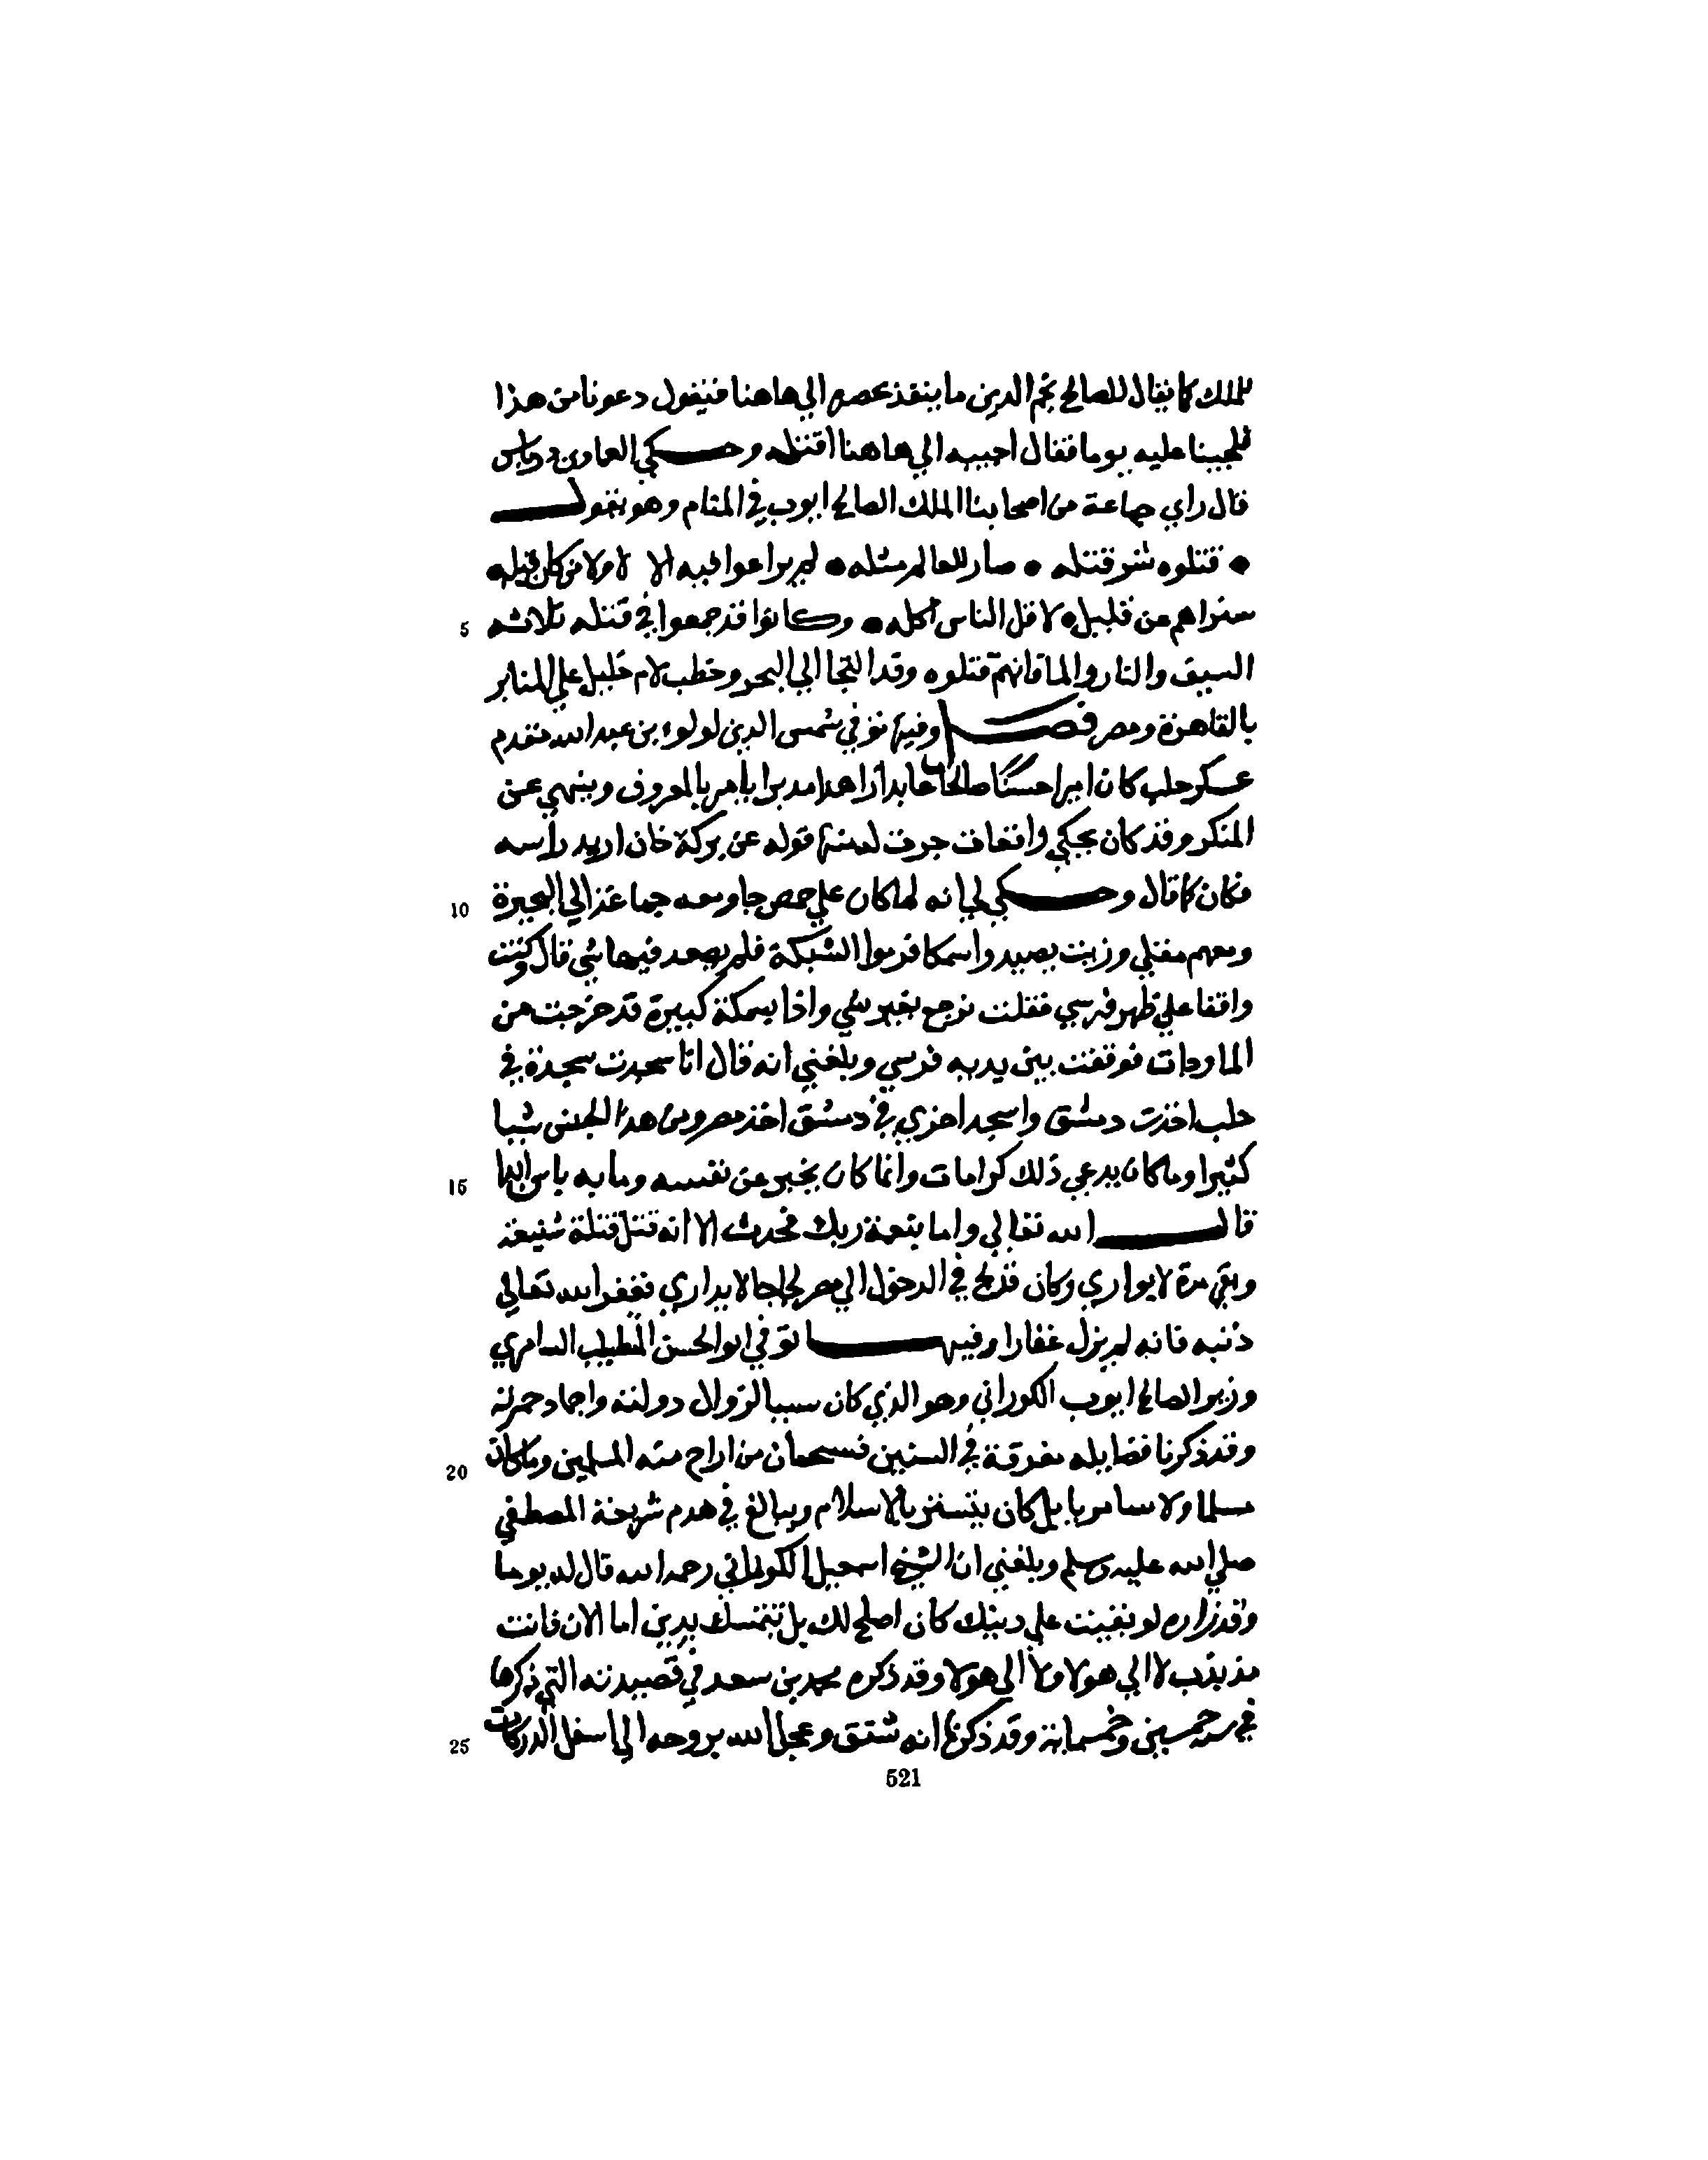 للملك كما يقال للصالح نجم الدين ما ينفذ يحضره الي هاهنا فيقول دعونا من هذا
فلححنا عليه يوما فقال احبيبه الي هاهنا اقتله وحكي العماد بن درباس
قال راي جماعة من اصحابنا الملك الصالح ايوب في المنام وهو يقول
• قتلوه شر قتله • صار للعالم مثله • لم يراعوا فيه الا لا ولا من كان قبله
ستراهم عن قليل • لاقل الناس اكله • وكانوا قد جمعوا في قتله ثلاثه
السيف والنار والما فانهم قتلوه وقد التجا الي البحر وخطب لام خليل علي المنابر
بالقاهرة ومصر فصل وفيها توفي شمس الدين لولوء بن عبد الله مقدم
عسكر حلب كان اميرا حسنا صالحا عابدا زاهدا مدبرا يامر بالمعروف وينهي عن
المنكر وقد كان يحكي واقعات جرت له منها قوله عن بركة خان اريد راسه
فكان كما قال وحكي لي انه لما كان علي حمص جا ومعه جماعة الي البحيرة
ومعهم مقلي وزيت يصيدوا سمكا فرموا الشبكة فلم يصعد فيها شي قال وكنت
واقفا علي ظهر فرسي فقلت نرجع بغير شي واذا بسمكة كبيرة قد خرجت من
الما وجات فوقفت بين يديه فرسي وبلغني انه قال انا سجدت سجدة في
حلب اخذت دمشق واسجد اخري في دمشق اخذ مصر ومن هذا الجنس شيا
كثيرا وما كان يدعي ذلك كرامات وانما كان يخبر عن نفسه وما به باس ايها
قال الله تعالي واما بنعمة ربك فحدث الا انه قتل قتلة شنيعة
وبقي مدة لا يواري وكان قد لج في الدخول الي مصر لجاجا لا يداري فغفر الله تعالي
ذنبه فانه لم يزل غفارا وفيها توفي ابو الحسن المطبب السامري
وزير الصالح ايوب الكوراني وهو الذي كان سببا لزوال دولته واخماد جمرته
وقد ذكرنا فضايله مفرقة في السنين فسبحان من اراح منه المسلمين وما كان
مسلما ولا سامريا بل كان يتستر بالاسلام ويبالغ في هدم شريعة المصطفي
صلي الله عليه وسلم وبلغني ان الشيخ اسمعيل الكوراني رحمه الله قال له يوما
وقد زاره لو بقيت علي دينك كان اصلح لك بل تتمسك بدين اما الان فانت
مذبذب لا الي هولا ولا الي هولا وقد ذكره محمد بن سعد في قصيدته التي ذكرها
في سنة خمسين وخمسماية وقد ذكرنا انه شنق وعجل الله بروحه الي اسفل الدركات
5
10
15
20
25
521